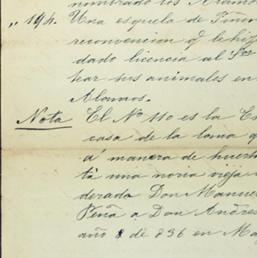 nombrado los Alamos
" 194. Una esquela de Tino
reconvencion q.e le hi
dado licencia al Sor
tar sus animales en
Alamos.
Nota El No 110 es la Es
casa de la loma q
á manera de huert
tá una noria vieja
derada Don Manue
Peña a Don Andres
año de 836 en Ma